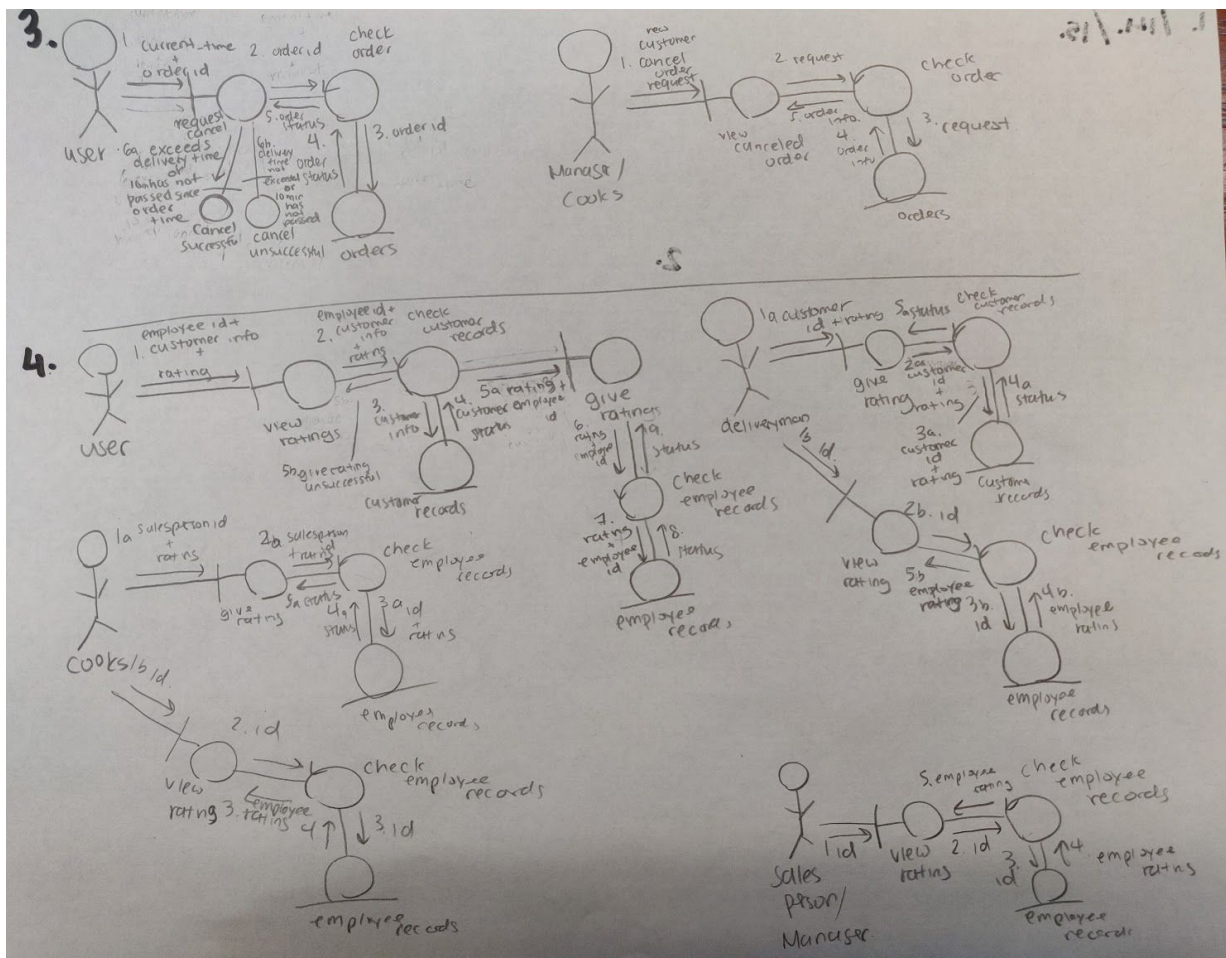 3.
1 current-time
+
order id
2. order id
check
order
request
cancel
5. order
status
3. order id
4.
order
status
user
6a. exceeds
delivery time
or
10min has not
passed since
order
time
6b.
delivery
time
not
exceeded
or
10 min
has
not
passed
cancel
successful
cancel
unsuccessful
orders
new
customer
1. cancel
order
request
2. request
check
order
5. order
info.
view
canceled
order
4.
order
info
3. request
Manager/
Cooks
orders
4.
employee id+
1. customer info
+
rating
employee id+
2. customer
info
+
rating
check
customer
records
user
view
ratings
5b give rating
unsuccessful
3.
customer
info
4.
customer
status
5a rating+
employee
id
customer
records
give
ratings
6.
rating
employee
id
9.
status
check
employee
records
7.
rating
+
employee
id
8.
status
employee
records
1a customer
id + rating
5a status
check
customer
records
give
rating
2a
customer
id
+
rating
4a
status
3a.
customer
id
+
rating
customer
records
deliveryman
id.
2b. id
view
rating
check
employee
records
5b
employee
rating
3b.
id
4b.
employee
rating
employee
records
1a salesperson id
+
rating
2a salesperson
id
+rating
check
employee
records
give
rating
5a status
4a
status
3a id
+
rating
employee
records
cooks
1b id.
2. id
view
rating
check
employee
records
3. employee
rating
4
3. id
employee
records
sales
person/
Manager
1 id
view
rating
2. id
5. employee
rating
check
employee
records
3.
id
4.
employee
rating
employee
records